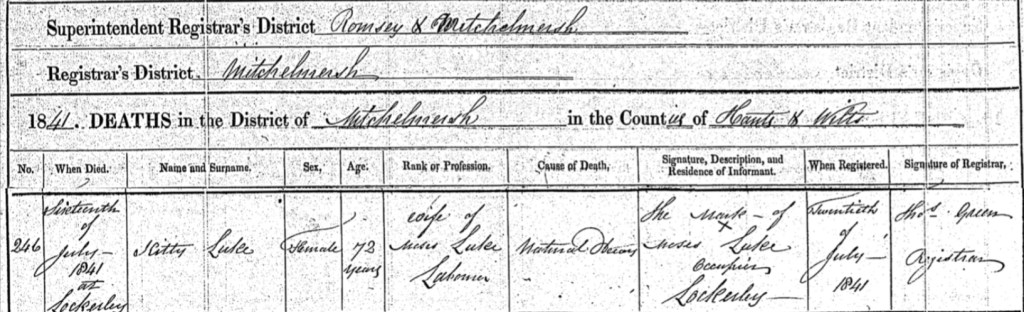 Superintendent Registrar's District Romsey & Mitchelmersh
Registrar's District. Mitchelmersh
1841. DEATHS in the District of Mitchelmersh in the Counties of Hants & Wilts
No. When Died. Name and Surname. Sex, Age. Rank or Profession. Cause of Death, Signature, Description, and Residence of Informant. When Registered. Signature of Registrar,
246
Sixteenth
of
July
1841
at
Lockerley
Kitty Luke
Female
72
years
wife of
Moses Luke
Labourer
Natural
The mark of
X
Moses Luke
Occupier
Lockerley
Twentieth
of
July
1841
Thos. Green
Registrar